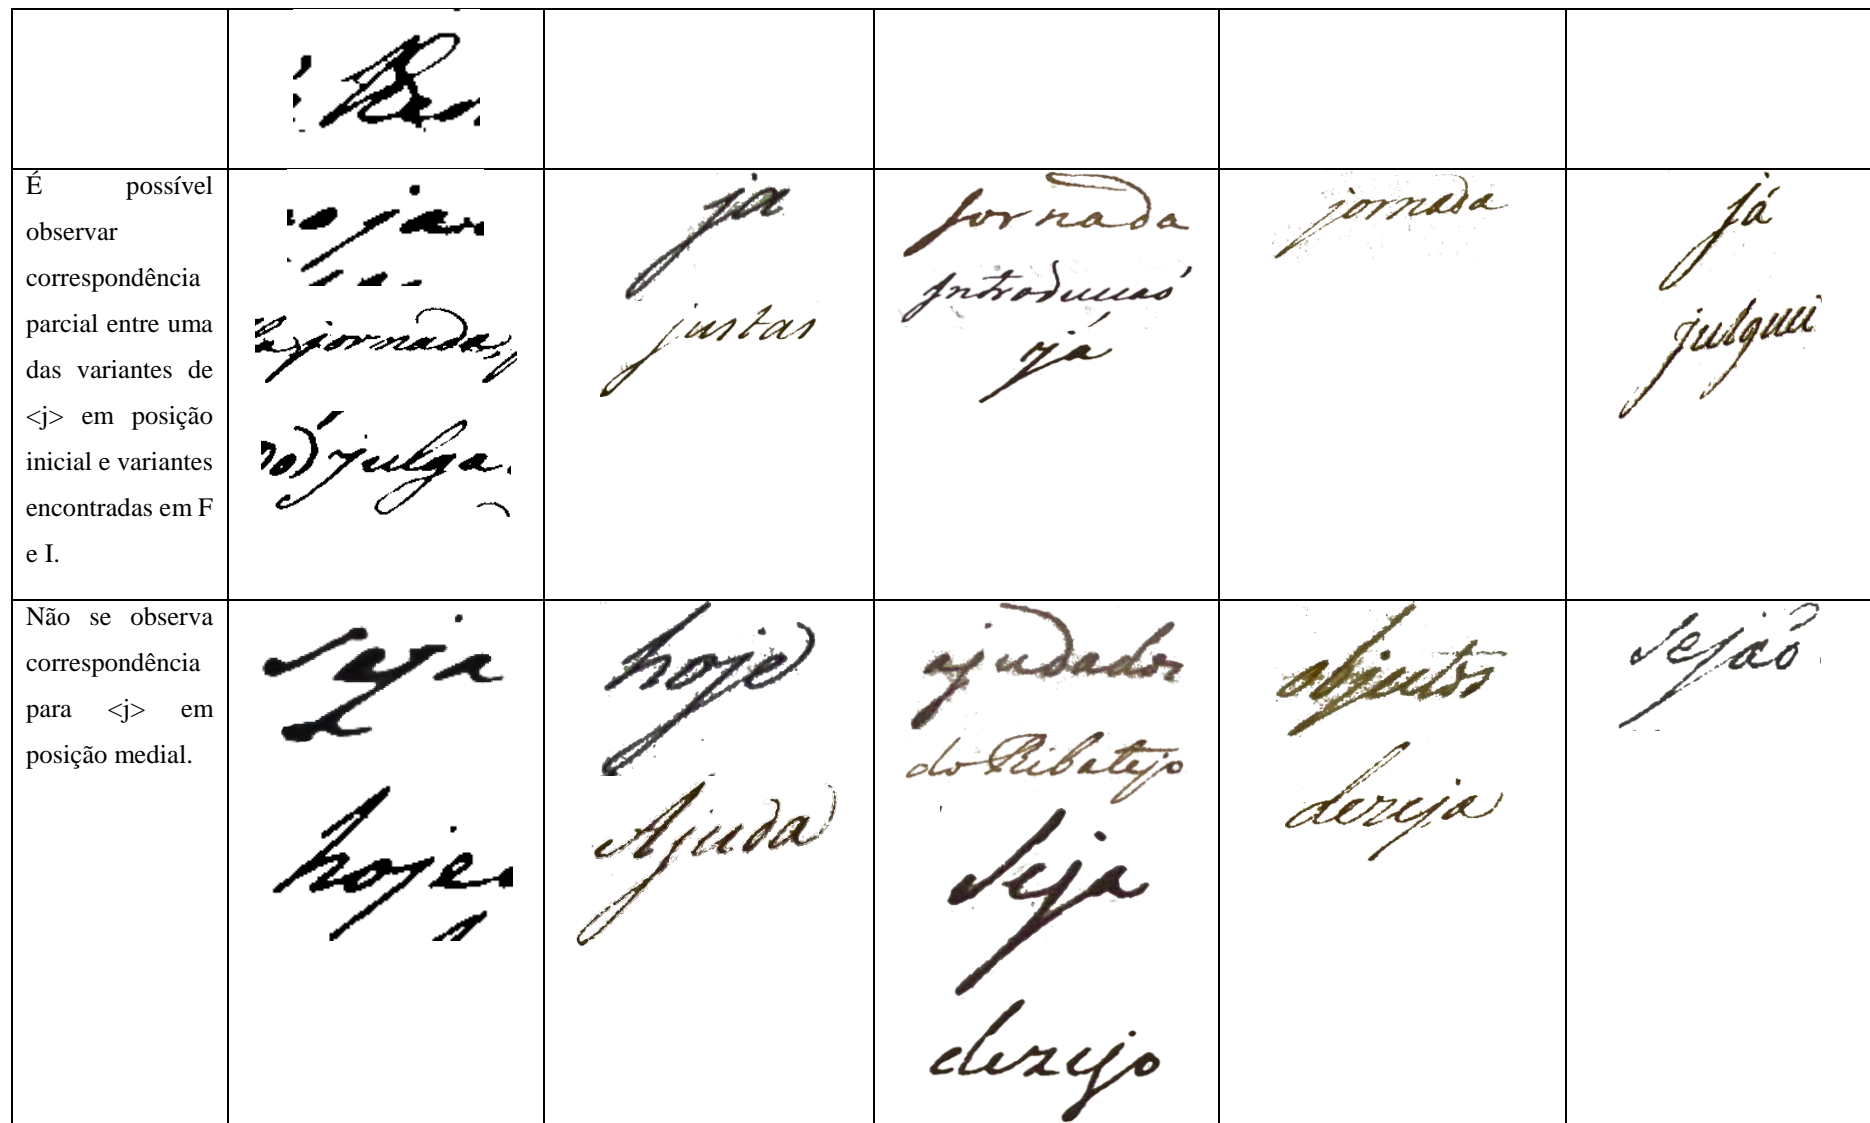 É possível
observar
correspondência
parcial entre uma
das variantes de
<j> em posição
inicial e variantes
encontradas em F
e I.
jornada,
julga
ja
justas
jornada
já
jornada
já
julguei
Não se observa
correspondência
para <j> em
posição medial.
seja
hoje
hoje
Ajuda
ajudador
do Ribatejo
seja
dezejo
objectos
dezeja
sejão